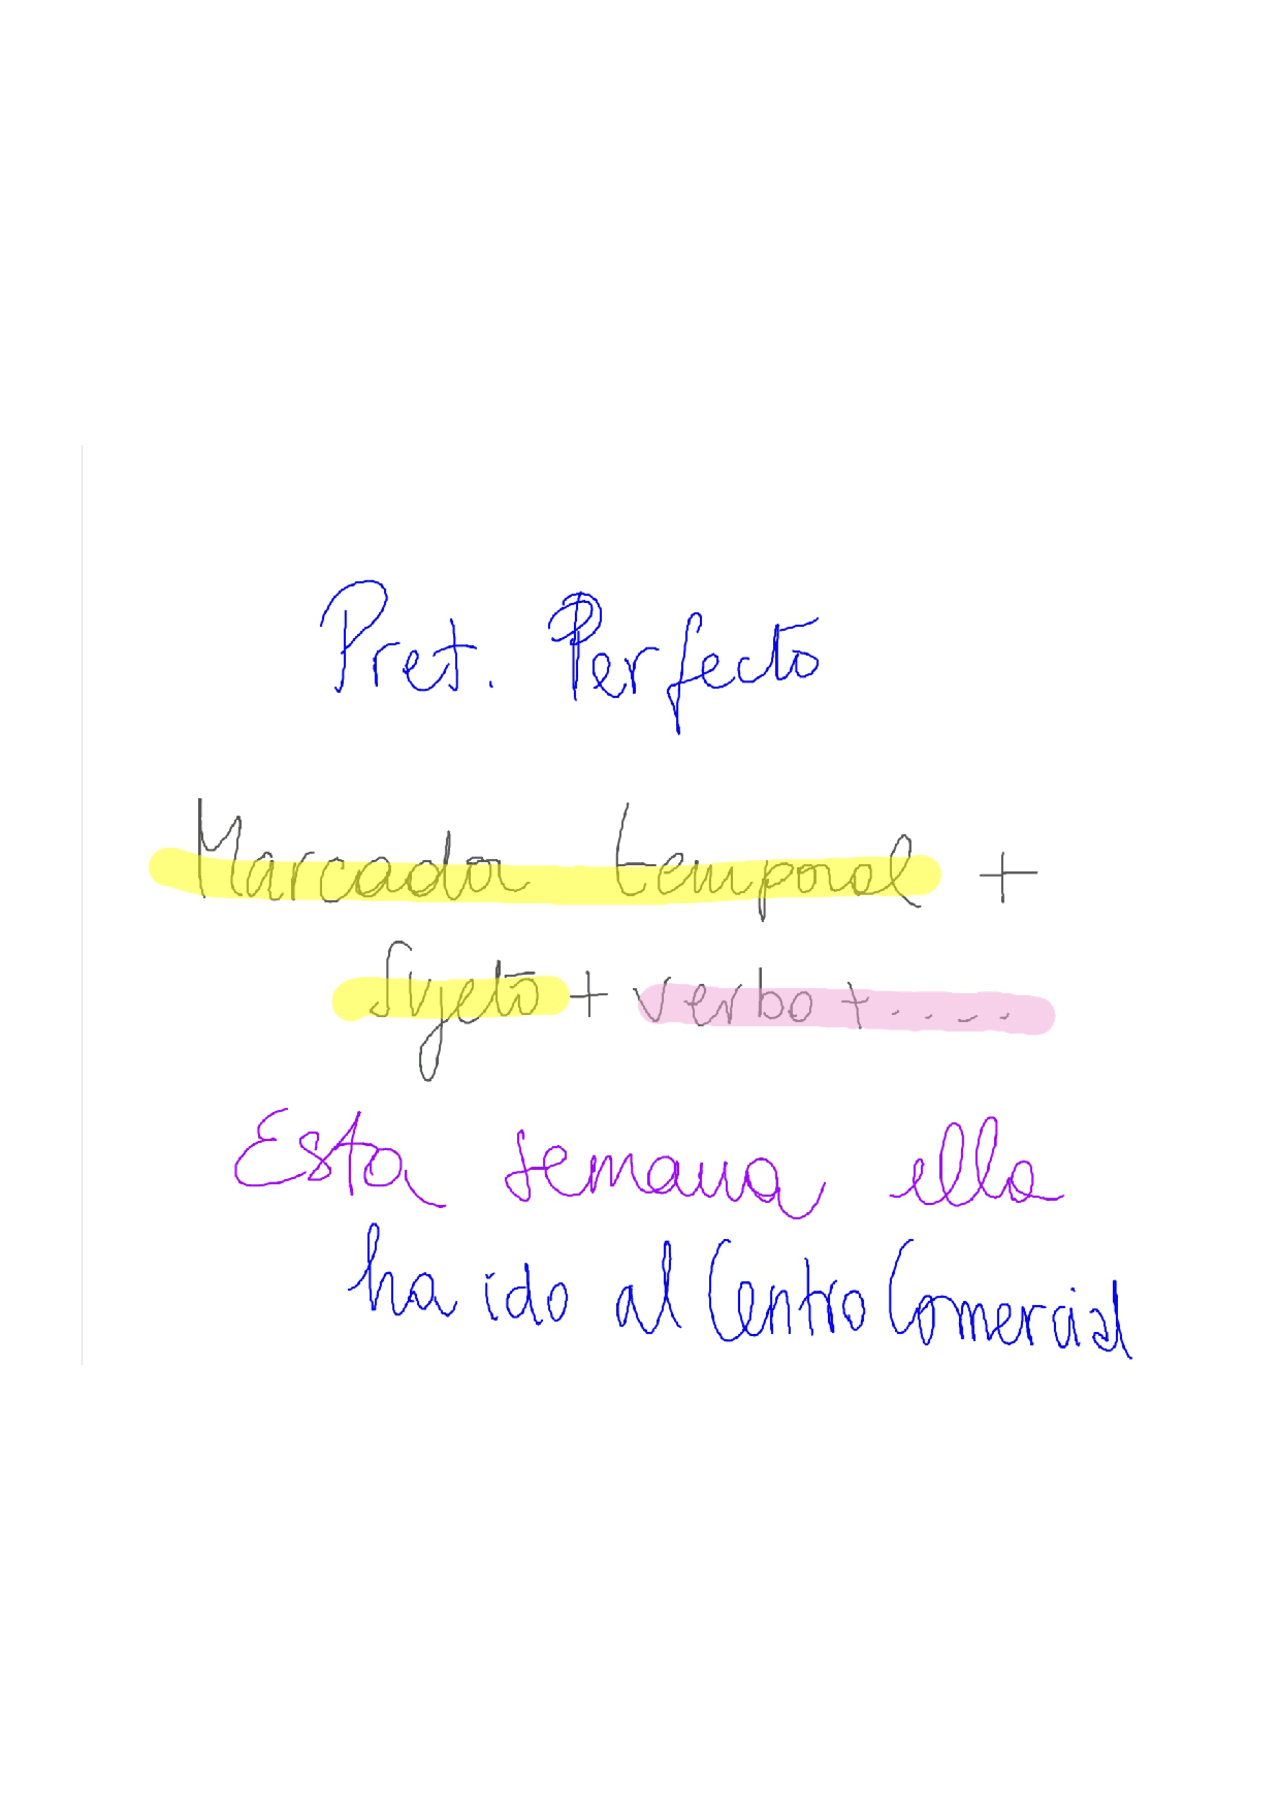 Pret. Perfecto
Marcador temporal +
Sujeto + verbo + .....
Esta semana ella
ha ido al Centro Comercial